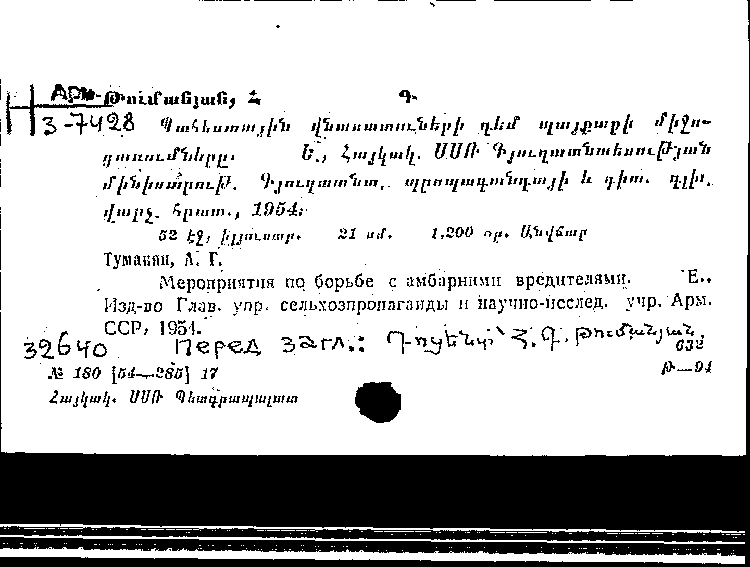 Арм. Թումանյան, Հ Գ.
3-7428 Պահեստային վնասատուների դեմ պայքարի միջո-
ցառումները. Ե., Հայկակ. ՍՍՌ Գյուղատնտեսության
մինիստրութ. Գյուղատնտ. պրոպագանդայի և գիտ. գլխ.
վարչ. հրատ., 1954.
52 էջ, իլյուստր. 21 սմ. 1.200 օր. Անվճար
Туманян, А. Г.
Мероприятия по борьбе с амбарными вредителями. Е.,
Изд-во Глав. упр. сельхозпропаганды и научно-исслед. учр. Арм.
ССР, 1954.
32640 Перед загл.: Դոցենտ՝ Հ. Գ. Թումանյան.
632
№ 180 [54—285] 17 Թ—94
Հայկակ. ՍՍՌ Պետգրապալատ